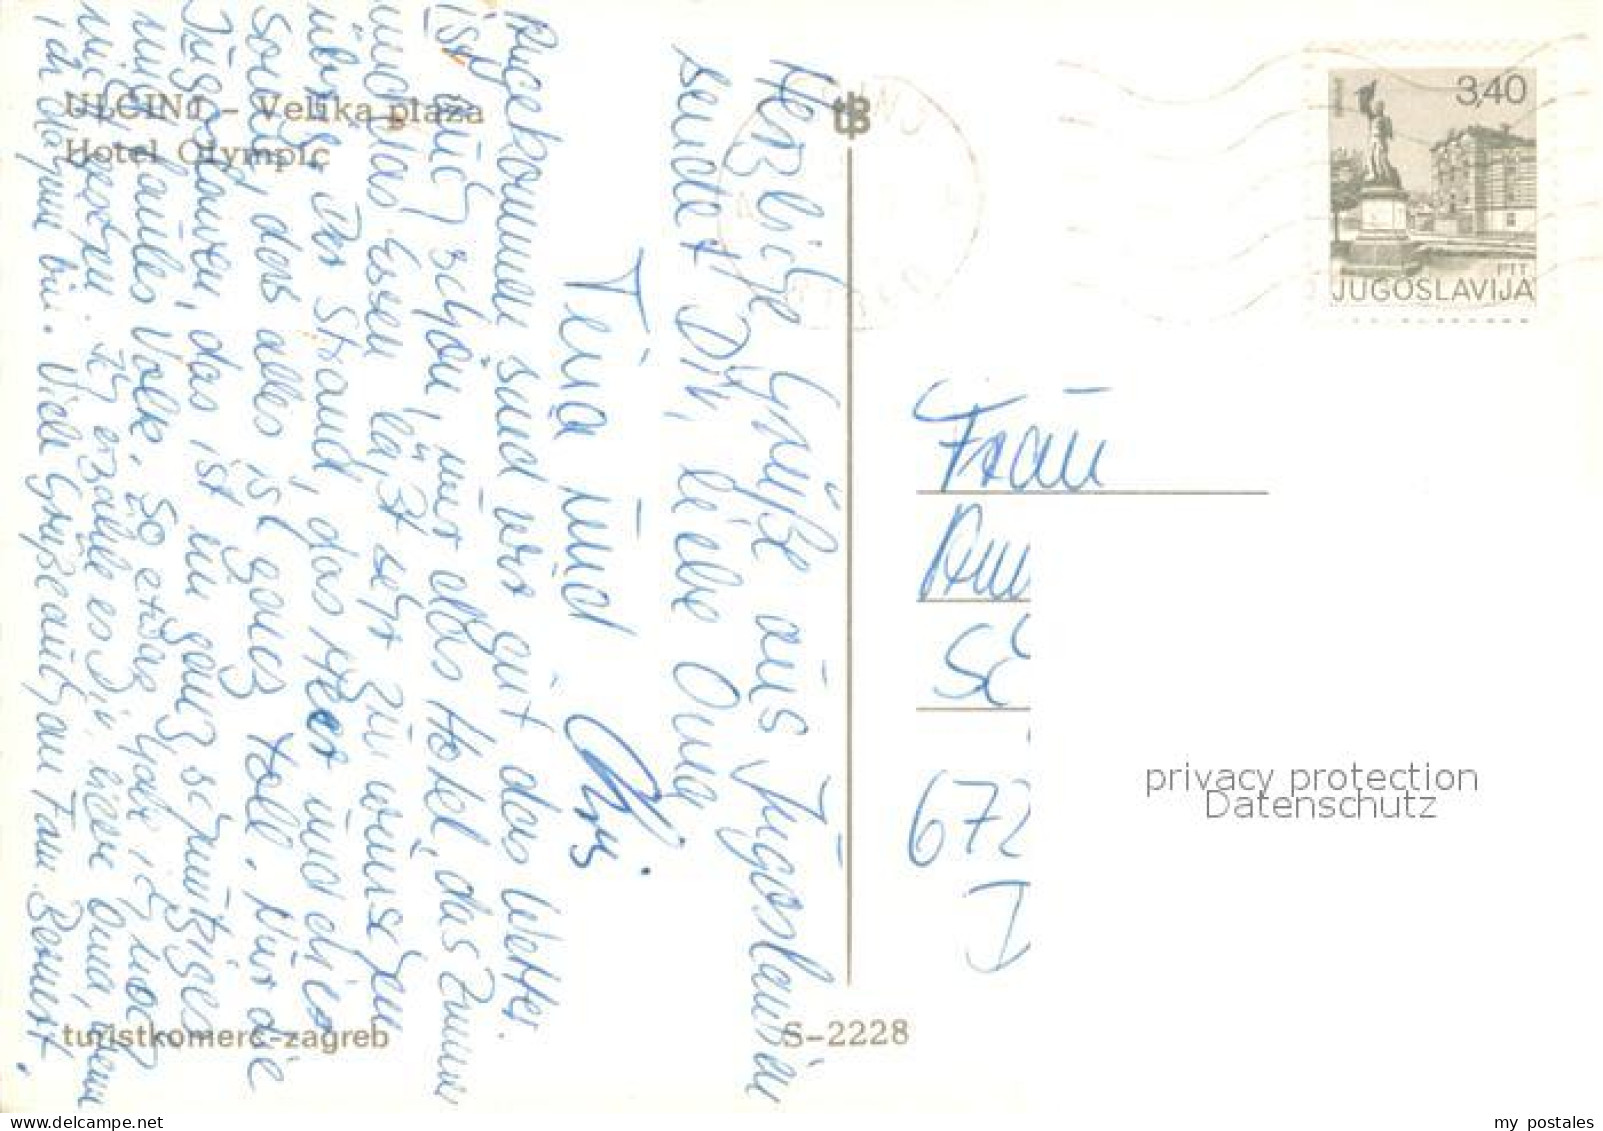 ULCINJ – Velika plaža
Hotel Olympic
Herzliche Grüße aus Jugoslavien
sendet Dir, liebe Oma
Tena und Chris.
Angekommen sind wir gut das Wetter
ist auch schön, nur alles Hotel, das Zimmer
und das Essen läßt sehr zu wünschen
übrig. Der Strand, das Meer und die
Sonne, das alles ist ganz toll. Nur die
Jugoslawen, das ist ein ganz schmutziges
und faules Volk. So etwas habe ich noch
nicht gesehen. Ich erzähle es Dir, liebe Oma, wenn
ich daheim bin. Viele Grüße auch an Fam.
turistkomerc-zagreb
S-2228
3,40
PTT
JUGOSLAVIJA
Frau
672
D
privacy protection
Datenschutz
my postales